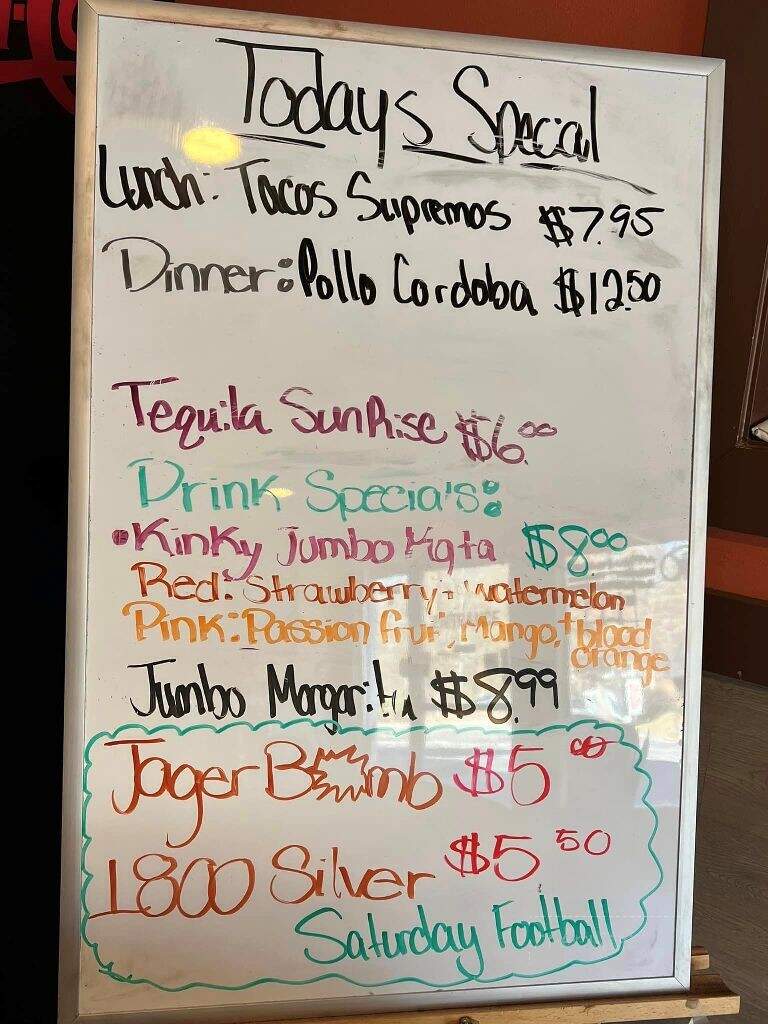 Todays Special
Lunch: Tacos Supremos $7.95
Dinner: Pollo Cordoba $12.50
Tequila SunRise $6.00
Drink Specia's:
•Kinky Jumbo Mgta $8.00
Red: Strawberry + Watermelon
Pink: Passion frui, Mango, + blood
orange
Jumbo Margarita $8.99
Jager Bomb $5.00
1800 Silver $5.50
Saturday Football